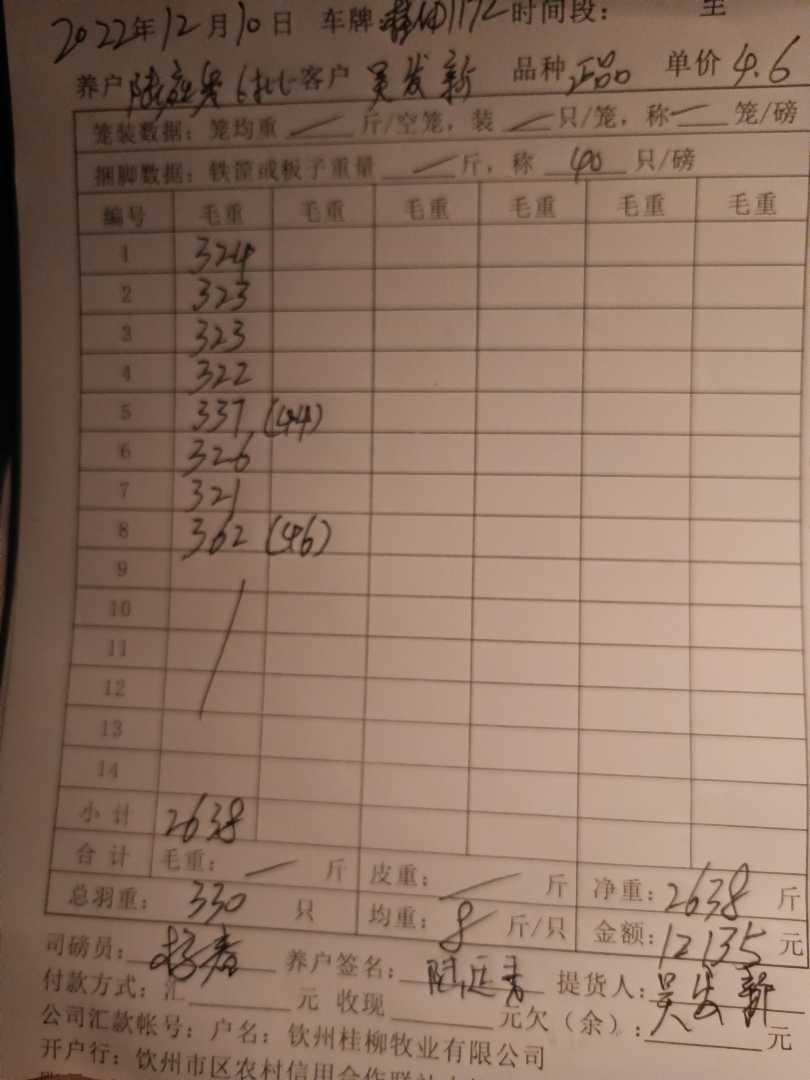 2022年12月10日 车牌: 1172 时间段: 至
养户 陆 6批 客户 吴发新 品种 正品 单价 4.6
笼装数据: 笼均重 — 斤/空笼, 装 — 只/笼, 称 — 笼/磅
捆脚数据: 铁筐或板子重量 — 斤, 称 40 只/磅
编号 毛重 毛重 毛重 毛重 毛重 毛重
1 324
2 323
3 323
4 322
5 337 (44)
6 326
7 321
8 362 (46)
9
10
11
12
13
14
小计 2638
合计 毛重: — 斤 皮重: — 斤 净重: 2638 斤
总羽重: 330 只 均重: 8 斤/只 金额: 12135 元
司磅员: 养户签名: 陆 提货人: 吴发新
付款方式: 汇 元 收现 元欠(余): 元
公司汇款帐号: 户名: 钦州桂柳牧业有限公司
开户行: 钦州市区农村信用合作联社